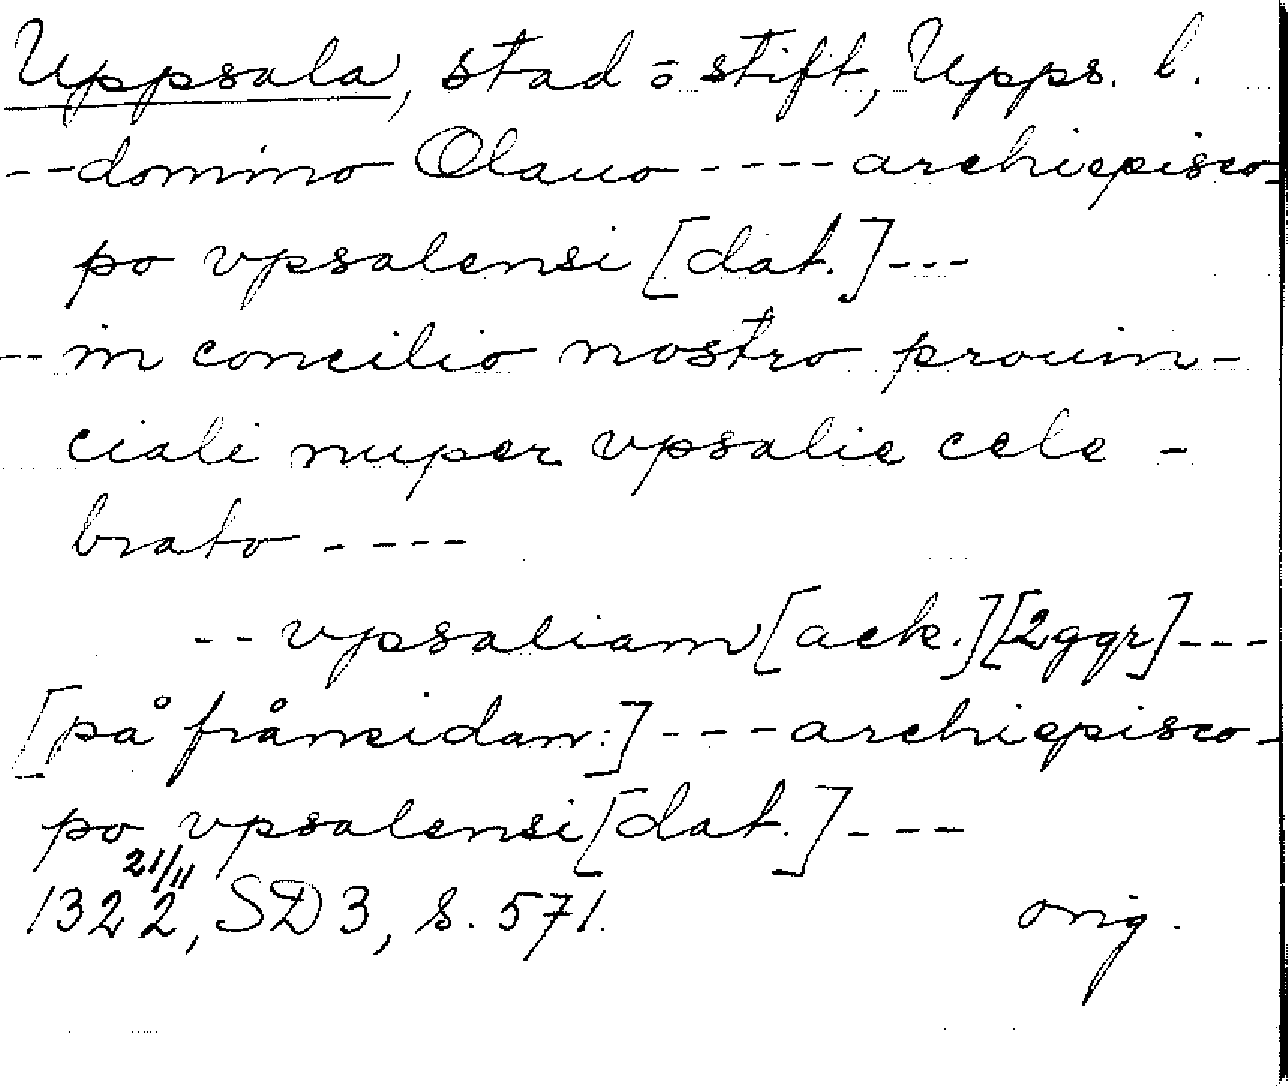 Uppsala, stad o stift, Upps. l.
-- domino Olauo ---- archiepisco-
po vpsalensi [dat.] ---
-- in concilio nostro prouin-
ciali nuper vpsalie cele-
brato ----
-- vpsaliam [ack.] [2ggr] ---
[på frånsidan:] --- archiepisco-
po vpsalensi [dat.] ---
21/11
1322, SD 3, s. 571. orig.